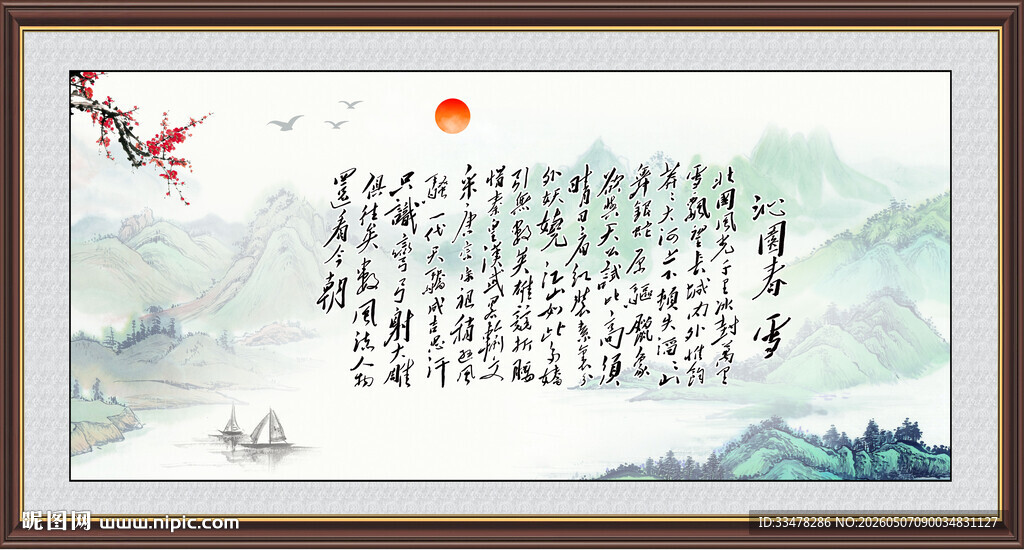 沁園春 雪
北國風光千里冰封萬里
雪飄望長城内外惟餘
莽々大河上下頓失滔々山
舞銀蛇原驅蠟象
欲與天公試比高須
晴日看紅裝素裹分
外妖嬈江山如此多嬌
引無數英雄競折腰
惜秦皇漢武略輸文
采唐宗宋祖稍遜風
騷一代天驕成吉思汗
只識彎弓射大雕
俱往矣數風流人物
還看今朝
昵图网 www.nipic.com
ID:33478286 NO:20260507090034831127